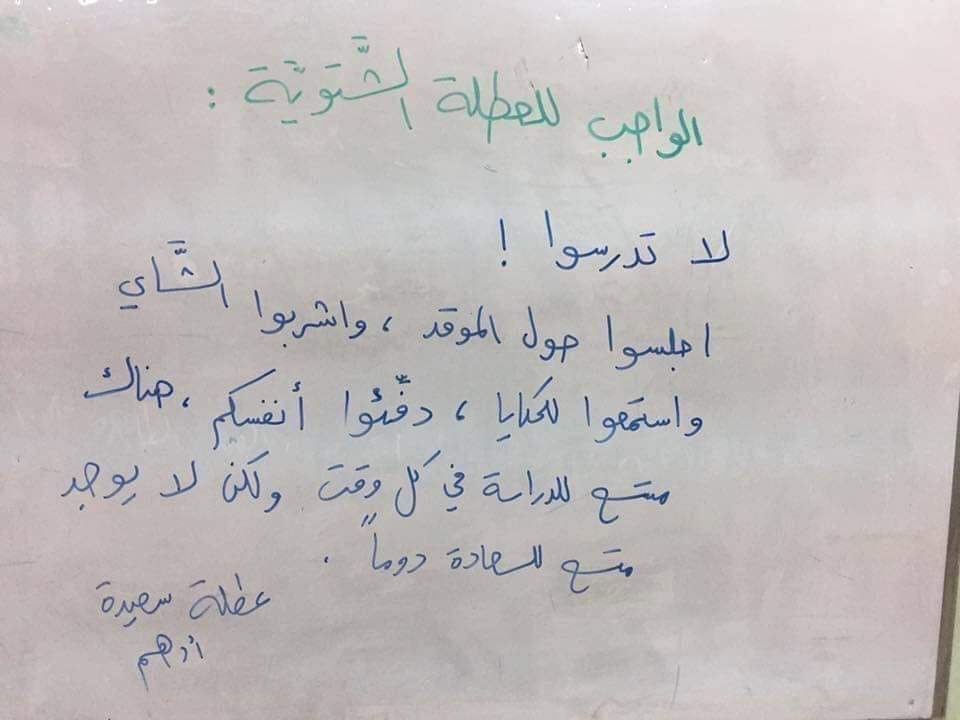 الواجب للعطلة الشَّتويَّة :
لا تدرسوا !
اجلسوا حول الموقد ، واشربوا الشَّاي
واستمعوا للحكايا ، دفِّئوا أنفسكم ، هناك
متسع للدراسة في كل وقت ولكن لا يوجد
متسع للسعادة دوماً .
عطلة سعيدة
أدهم